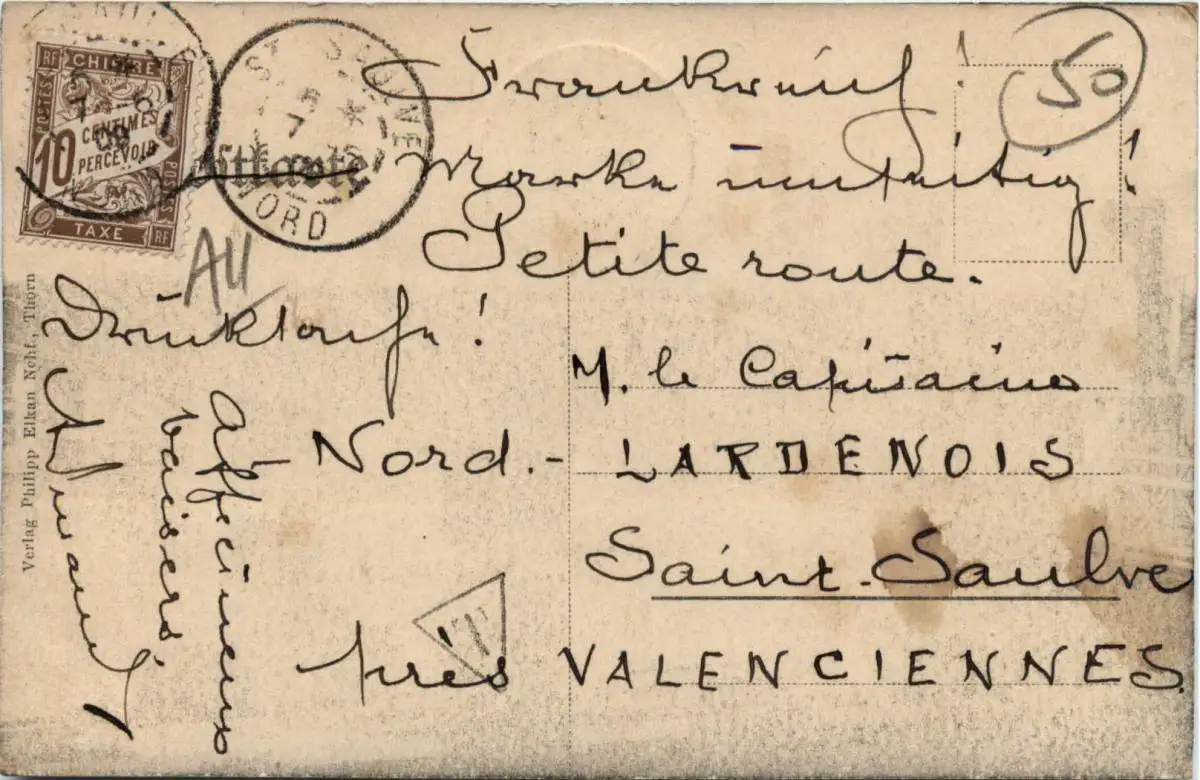 Frankreich!
Marke umseitig!
Petite route.
Drucksache!
M. le Capitaine
Nord.- LARDENOIS
Saint-Saulve
près VALENCIENNES.
Affectueux
baisers.
50
AU
T
RF CHIFFRE
POSTES
10 CENTIMES
A PERCEVOIR
TAXE RF
ST SAULVE
NORD
Postkarte
Verlag Philipp Elkan Nchf., Thorn